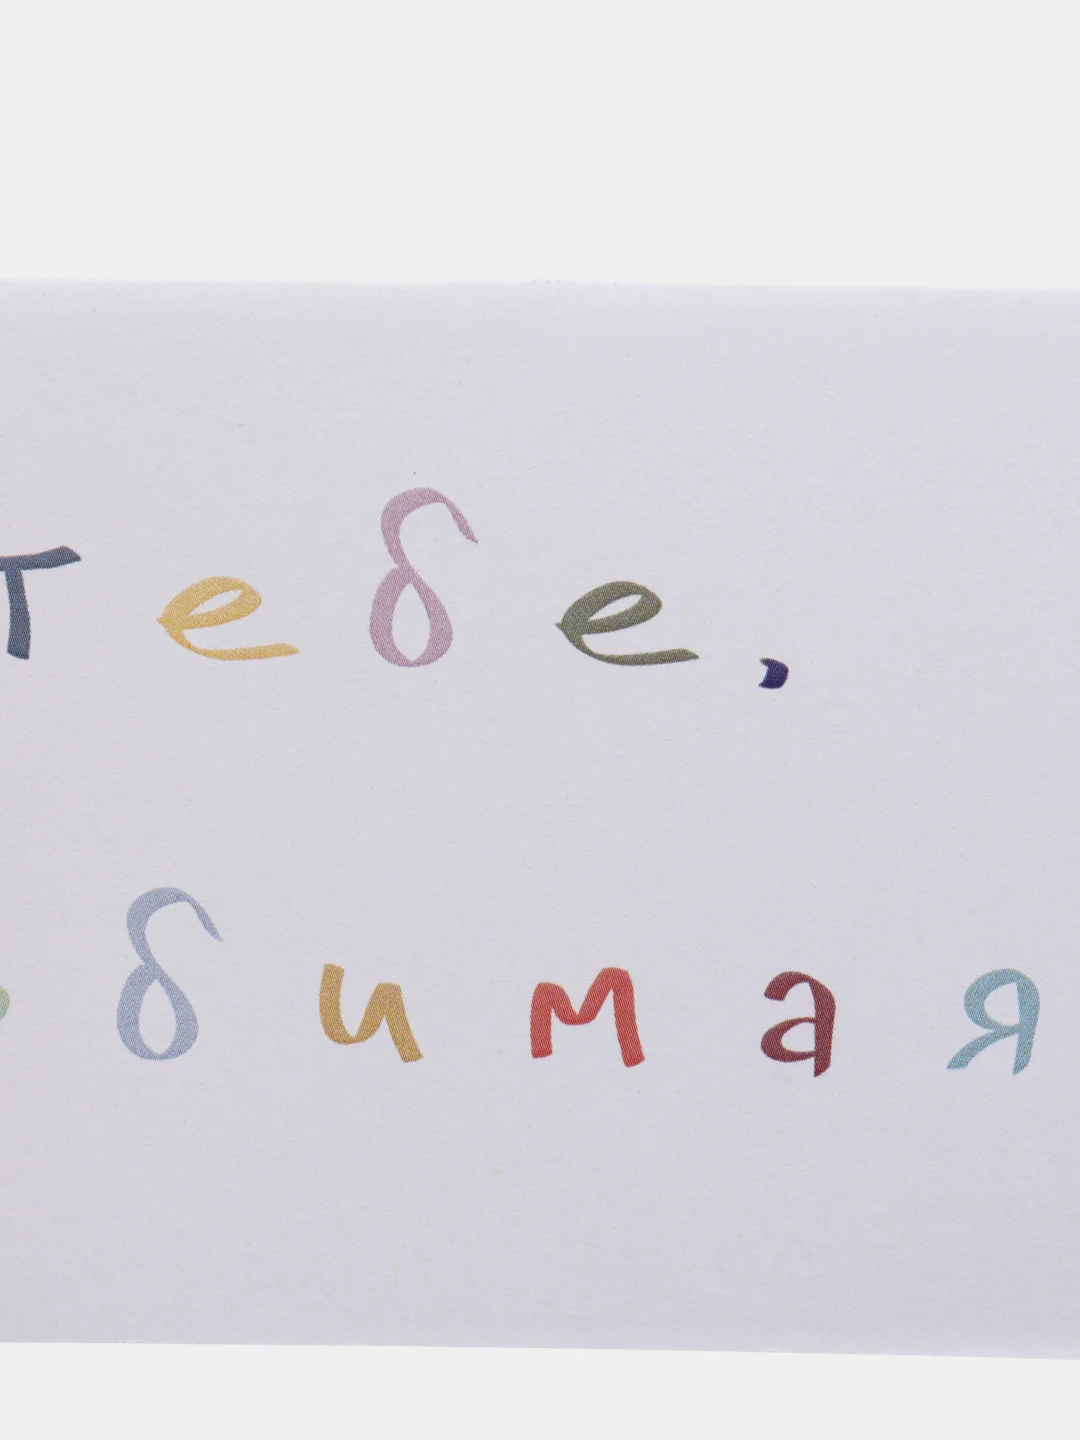 Тебе,
бимая